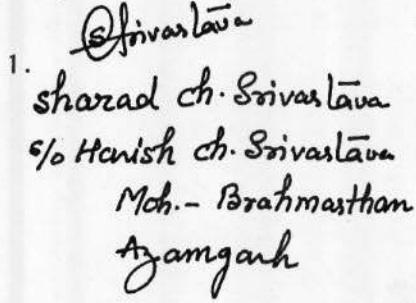 Srivastava
1.
Sharad ch. Srivastava
s/o Harish ch. Srivastava
Moh.- Brahmasthan
Azamgarh